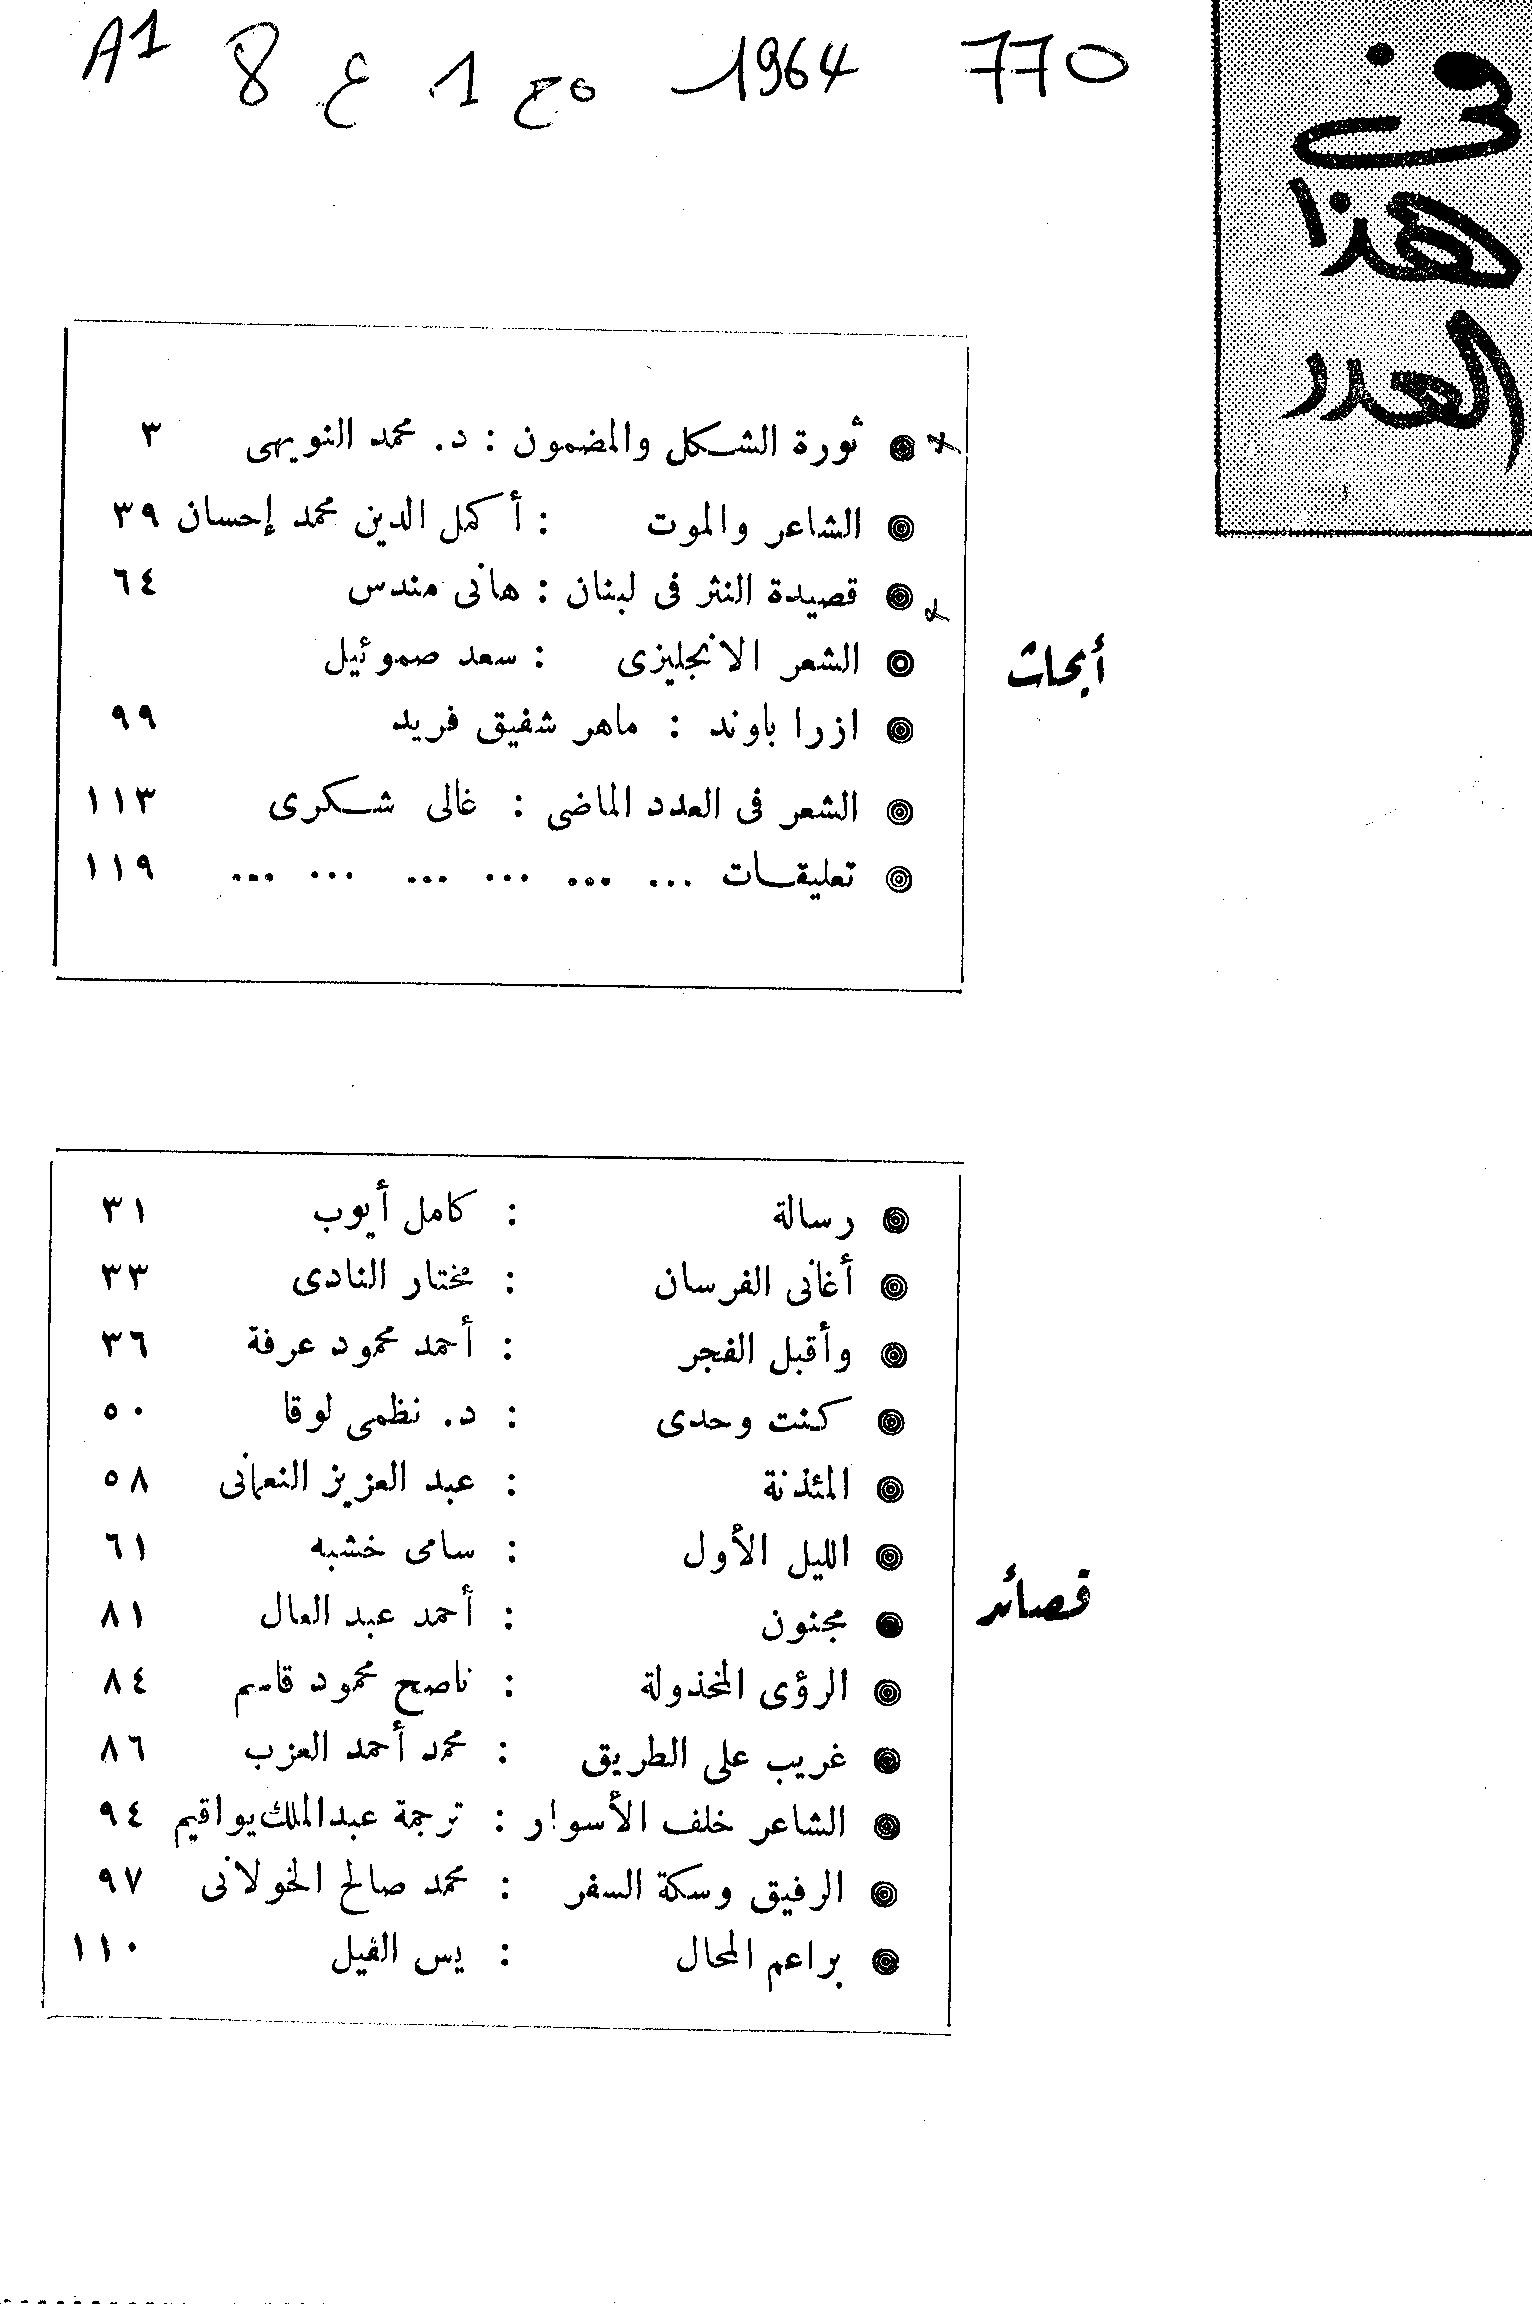 770 1964 مج 1 ع 8 A1
في
هذا
العدد
أبحاث
ثورة الشكل والمضمون : د. محمد النويهى ٣
الشاعر والموت : أكمل الدين محمد إحسان ٣٩
قصيدة النثر فى لبنان : هانى مندس ٦٤
الشعر الانجليزى : سعد صموئيل
ازرا باوند : ماهر شفيق فريد ٩٩
الشعر فى العدد الماضى : غالى شكرى ١١٣
تعليقات ... ... ... ... ... ... ١١٩
قصائد
رسالة : كامل أيوب ٣١
أغانى الفرسان : مختار النادى ٣٣
وأقبل الفجر : أحمد محمود عرفة ٣٦
كنت وحدى : د. نظمى لوقا ٥٠
المئذنة : عبد العزيز النعمانى ٥٨
الليل الأول : سامى خشبه ٦١
مجنون : أحمد عبد العال ٨١
الرؤى المخذولة : ناصح محمود قاسم ٨٤
غريب على الطريق : محمد أحمد العزب ٨٦
الشاعر خلف الأسوار : ترجمة عبدالملك يواقيم ٩٤
الرفيق وسكة السفر : محمد صالح الخولانى ٩٧
براعم المحال : يس الفيل ١١٠